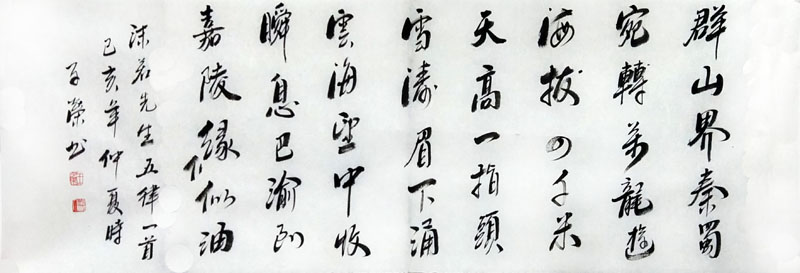 群山界秦蜀
宛轉萬龍遊
海拔四千米
天高一指頭
雪濤眉下涌
雲海望中收
瞬息巴渝到
嘉陵緑似油
沫若先生五律一首
己亥年仲夏時
子榮书